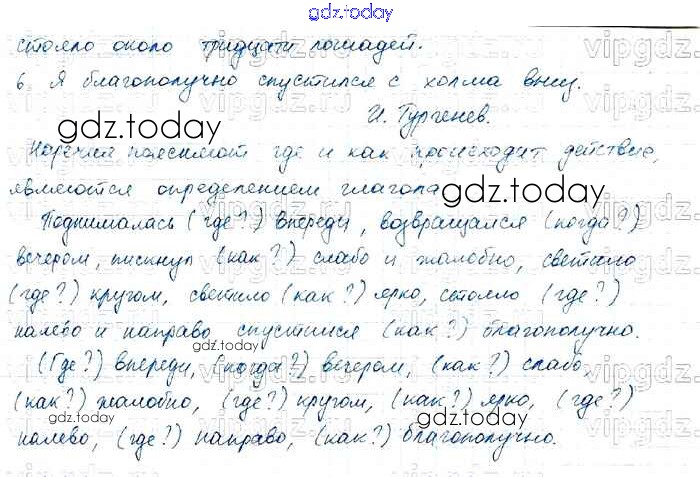 gdz.today
стояло около тридцати лошадей.
6. Я благополучно спустился с холма вниз.
И. Тургенев.
gdz.today
Наречия поясняют где и как происходит действие,
являются определением глагола
gdz.today
Поднималась (где?) впереди, возвращался (когда?)
вечером, пискнул (как?) слабо и жалобно, светило
(где?) кругом, светило (как?) ярко, стояло (где?)
налево и направо спустился (как?) благополучно.
gdz.today
(Где?) впереди, (когда?) вечером, (как?) слабо,
(как?) жалобно, (где?) кругом, (как?) ярко, (где?)
gdz.today
gdz.today
налево, (где?) направо, (как?) благополучно.